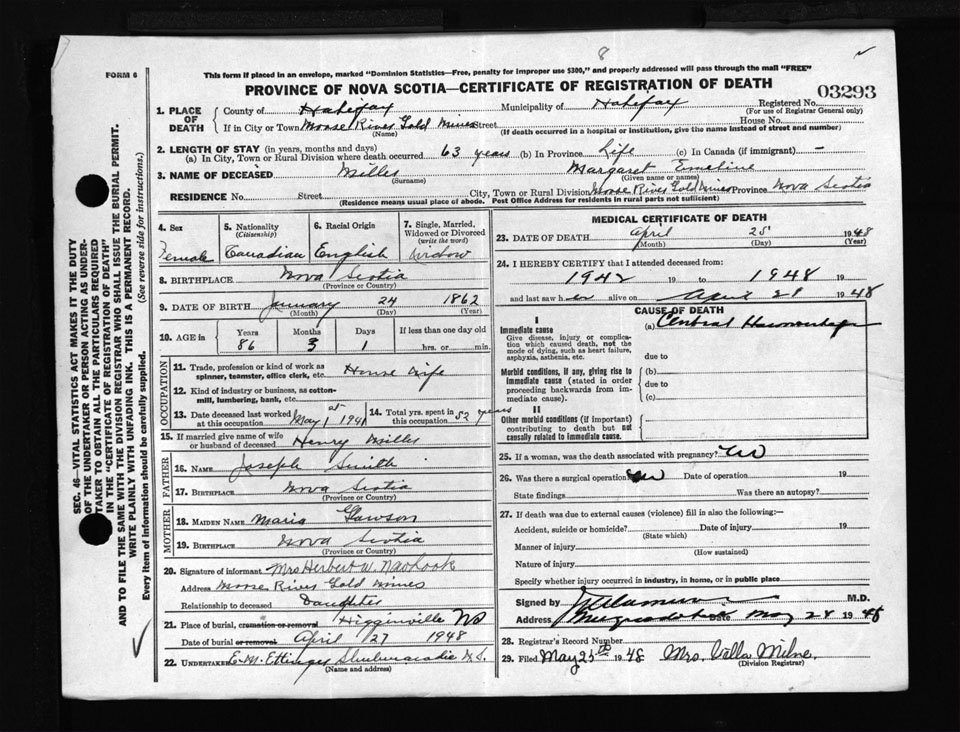 8
FORM 6
This form if placed in an envelope, marked "Dominion Statistics—Free, penalty for improper use $300," and properly addressed will pass through the mail "FREE"
PROVINCE OF NOVA SCOTIA—CERTIFICATE OF REGISTRATION OF DEATH
03293
1. PLACE OF DEATH
County of Halifax Municipality of Halifax Registered No.
(For use of Registrar General only)
If in City or Town Moose River Gold Mines Street House No.
(Name) (If death occurred in a hospital or institution, give the name instead of street and number)
2. LENGTH OF STAY (in years, months and days)
(a) In City, Town or Rural Division where death occurred 63 years (b) In Province Life (c) In Canada (if immigrant) -
3. NAME OF DECEASED Miller Margaret Emeline
(Surname) (Given name or names)
RESIDENCE No. Street City, Town or Rural Division Moose River Gold Mines Province Nova Scotia
(Residence means usual place of abode. Post Office Address for residents in rural parts not sufficient)
4. Sex
Female
5. Nationality
(Citizenship)
Canadian
6. Racial Origin
English
7. Single, Married, Widowed or Divorced
(write the word)
Widow
8. BIRTHPLACE Nova Scotia
(Province or Country)
9. DATE OF BIRTH January 24 1862
(Month) (Day) (Year)
10. AGE in
Years Months Days If less than one day old
86 3 1 hrs. or min.
OCCUPATION
11. Trade, profession or kind of work as spinner, teamster, office clerk, etc. House Wife
12. Kind of industry or business, as cotton-mill, lumbering, bank, etc.
13. Date deceased last worked at this occupation May 1st 1941
14. Total yrs. spent in this occupation 52 years
15. If married give name of wife or husband of deceased Henry Miller
FATHER
16. NAME Joseph Smith
17. BIRTHPLACE Nova Scotia
(Province or Country)
MOTHER
18. MAIDEN NAME Maria
19. BIRTHPLACE Nova Scotia
(Province or Country)
20. Signature of informant Mrs Herbert W.
Address Moose River Gold Mines
Relationship to deceased Daughter
21. Place of burial, cremation or removal Higginsville NS
Date of burial or removal April 27 1948
22. UNDERTAKER E.M. Ettinger Shubenacadie N.S.
(Name and address)
MEDICAL CERTIFICATE OF DEATH
23. DATE OF DEATH April 25 1948
(Month) (Day) (Year)
24. I HEREBY CERTIFY that I attended deceased from:
1942 19 to 1948 19
and last saw her alive on April 1948
CAUSE OF DEATH
I
Immediate cause
Give disease, injury or complication which caused death, not the mode of dying, such as heart failure, asphyxia, asthenia, etc.
(a) Cerebral Haemorrhage
due to
Morbid conditions, if any, giving rise to immediate cause (stated in order proceeding backwards from immediate cause).
(b)
due to
(c)
II
Other morbid conditions (if important) contributing to death but not causally related to immediate cause.
25. If a woman, was the death associated with pregnancy? No
26. Was there a surgical operation No Date of operation 19
State findings Was there an autopsy?
27. If death was due to external causes (violence) fill in also the following:—
Accident, suicide or homicide? Date of injury 19
(State which)
Manner of injury
(How sustained)
Nature of injury
Specify whether injury occurred in industry, in home, or in public place
Signed by M.D.
Address Date May 28 1948
28. Registrar's Record Number
29. Filed May 25th 1948 Mrs. Villa Milne.
(Division Registrar)
SEC. 46—VITAL STATISTICS ACT MAKES IT THE DUTY
OF THE UNDERTAKER OR PERSON ACTING AS UNDER-
TAKER TO OBTAIN ALL THE PARTICULARS REQUIRED
IN THE "CERTIFICATE OF REGISTRATION OF DEATH"
AND TO FILE THE SAME WITH THE DIVISION REGISTRAR WHO SHALL ISSUE THE BURIAL PERMIT.
WRITE PLAINLY WITH UNFADING INK. THIS IS A PERMANENT RECORD.
Every item of information should be carefully supplied. (See reverse side for instructions.)